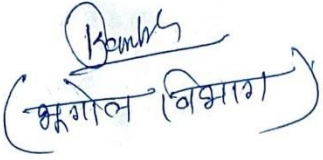 (भूगोल विभाग)